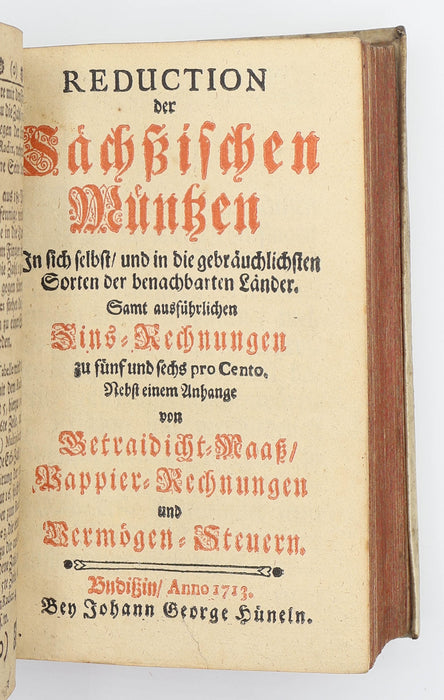 REDUCTION
der
Sächßischen
Müntzen
In sich selbst/ und in die gebräuchlichsten
Sorten der benachbarten Länder.
Samt ausführlichen
Zins-Rechnungen
zu fünf und sechs pro Cento.
Nebst einem Anhange
von
Getraidicht-Maaß/
Pappier-Rechnungen
und
Vermögen-Steuern.
Budißin/ Anno 1713.
Bey Johann George Hüneln.